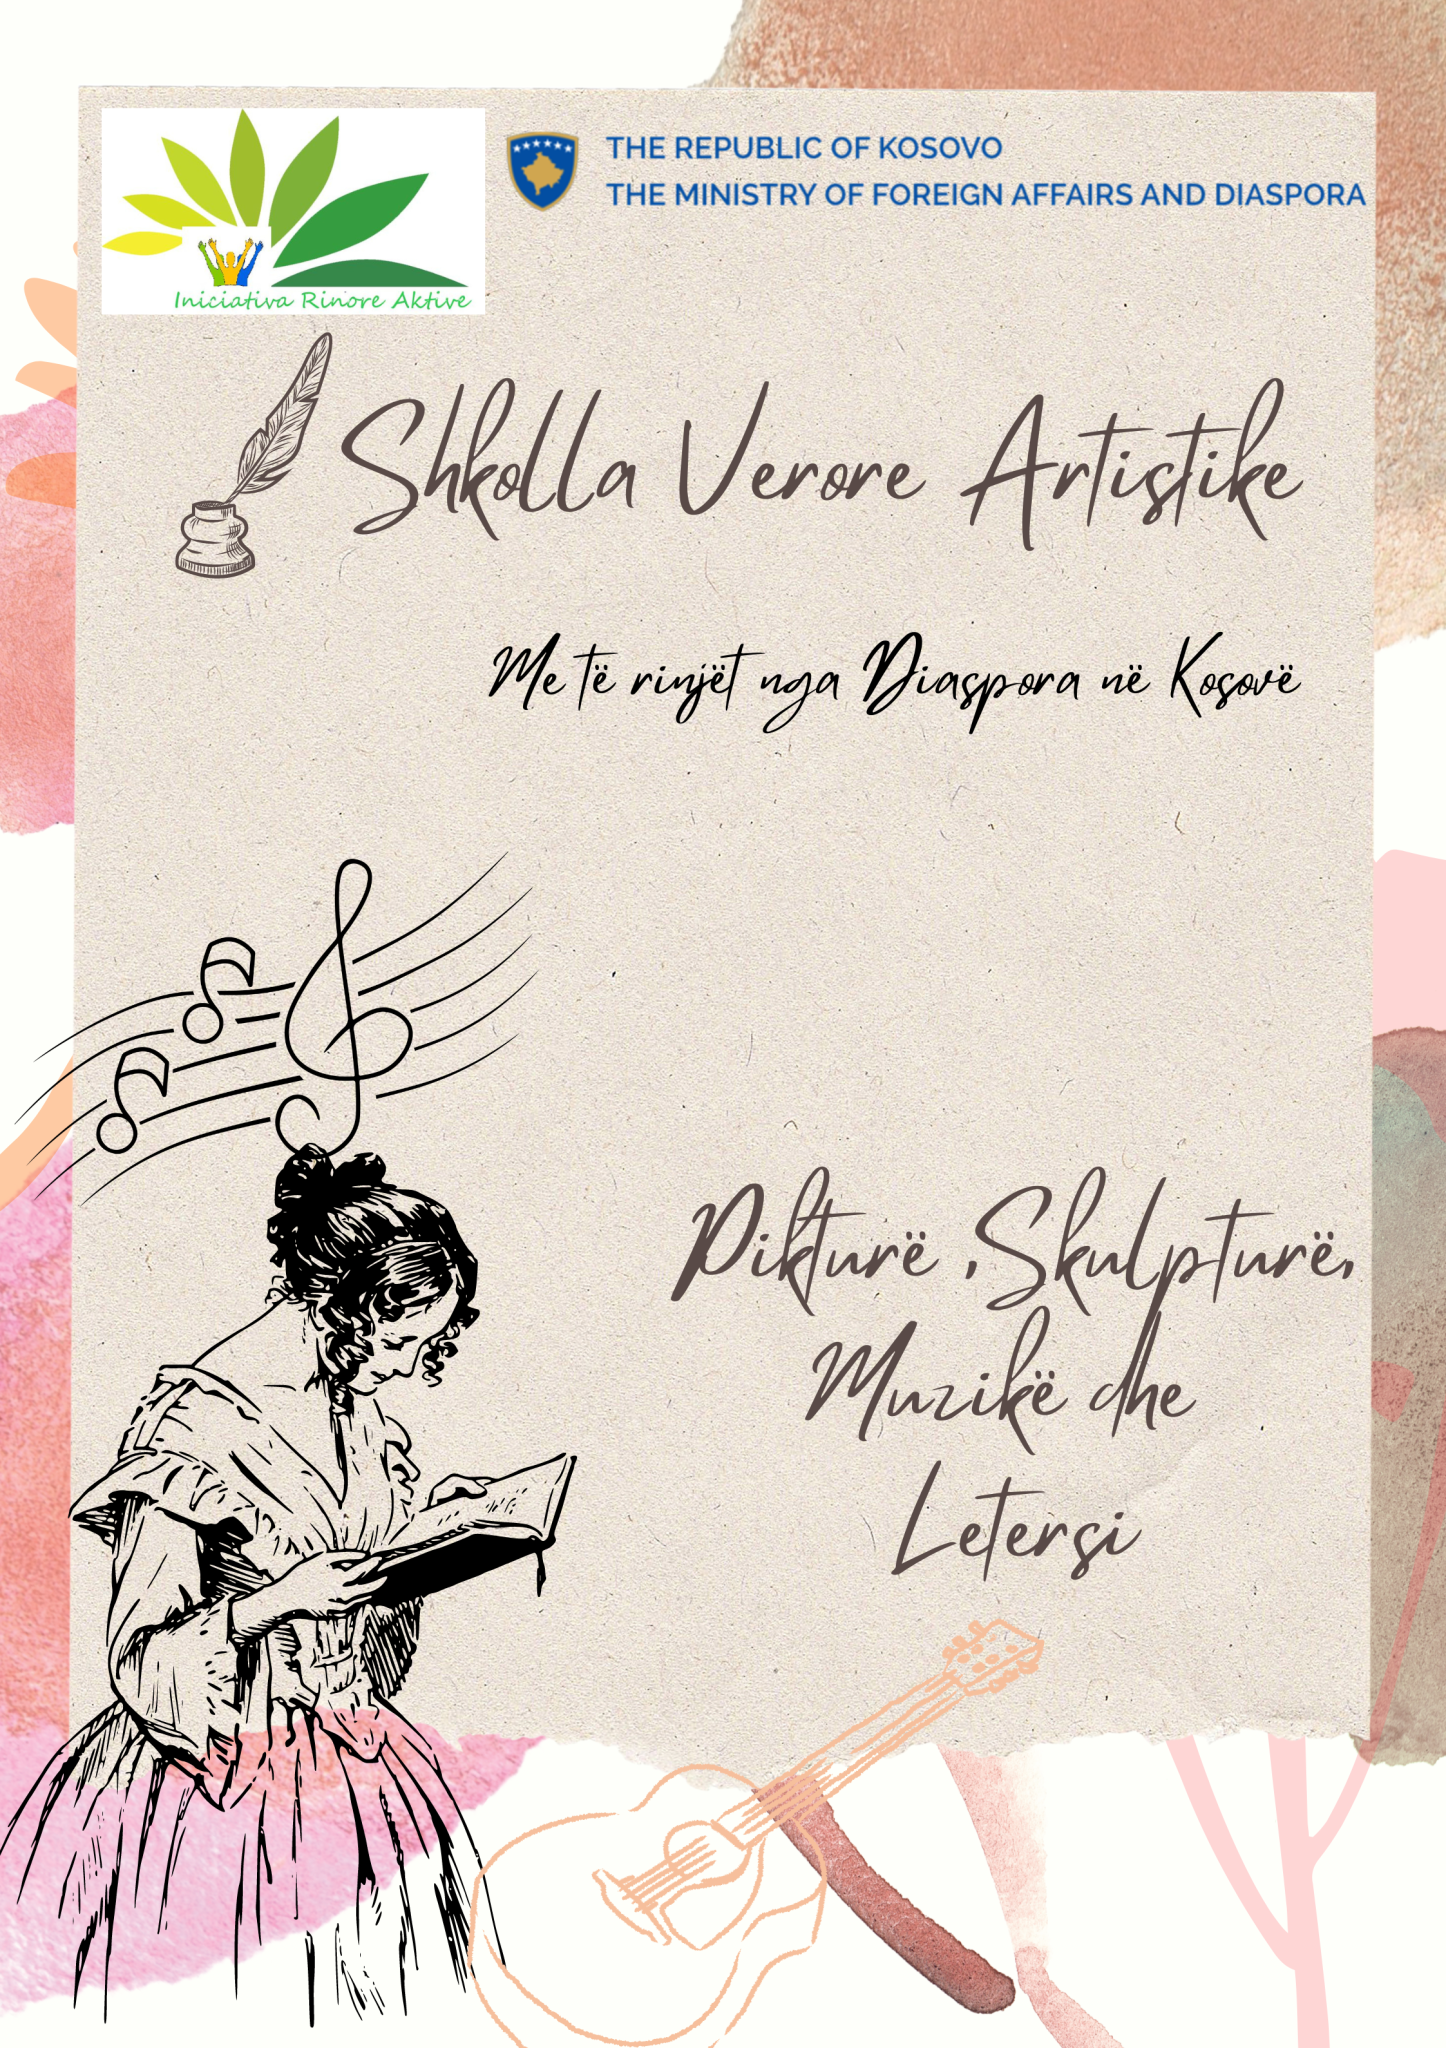 THE REPUBLIC OF KOSOVO
THE MINISTRY OF FOREIGN AFFAIRS AND DIASPORA
Iniciativa Rinore Aktive
Shkolla Verore Artistike
Me të rinjët nga Diaspora në Kosovë
Pikturë ,Skulpturë,
Muzikë dhe
Letersi